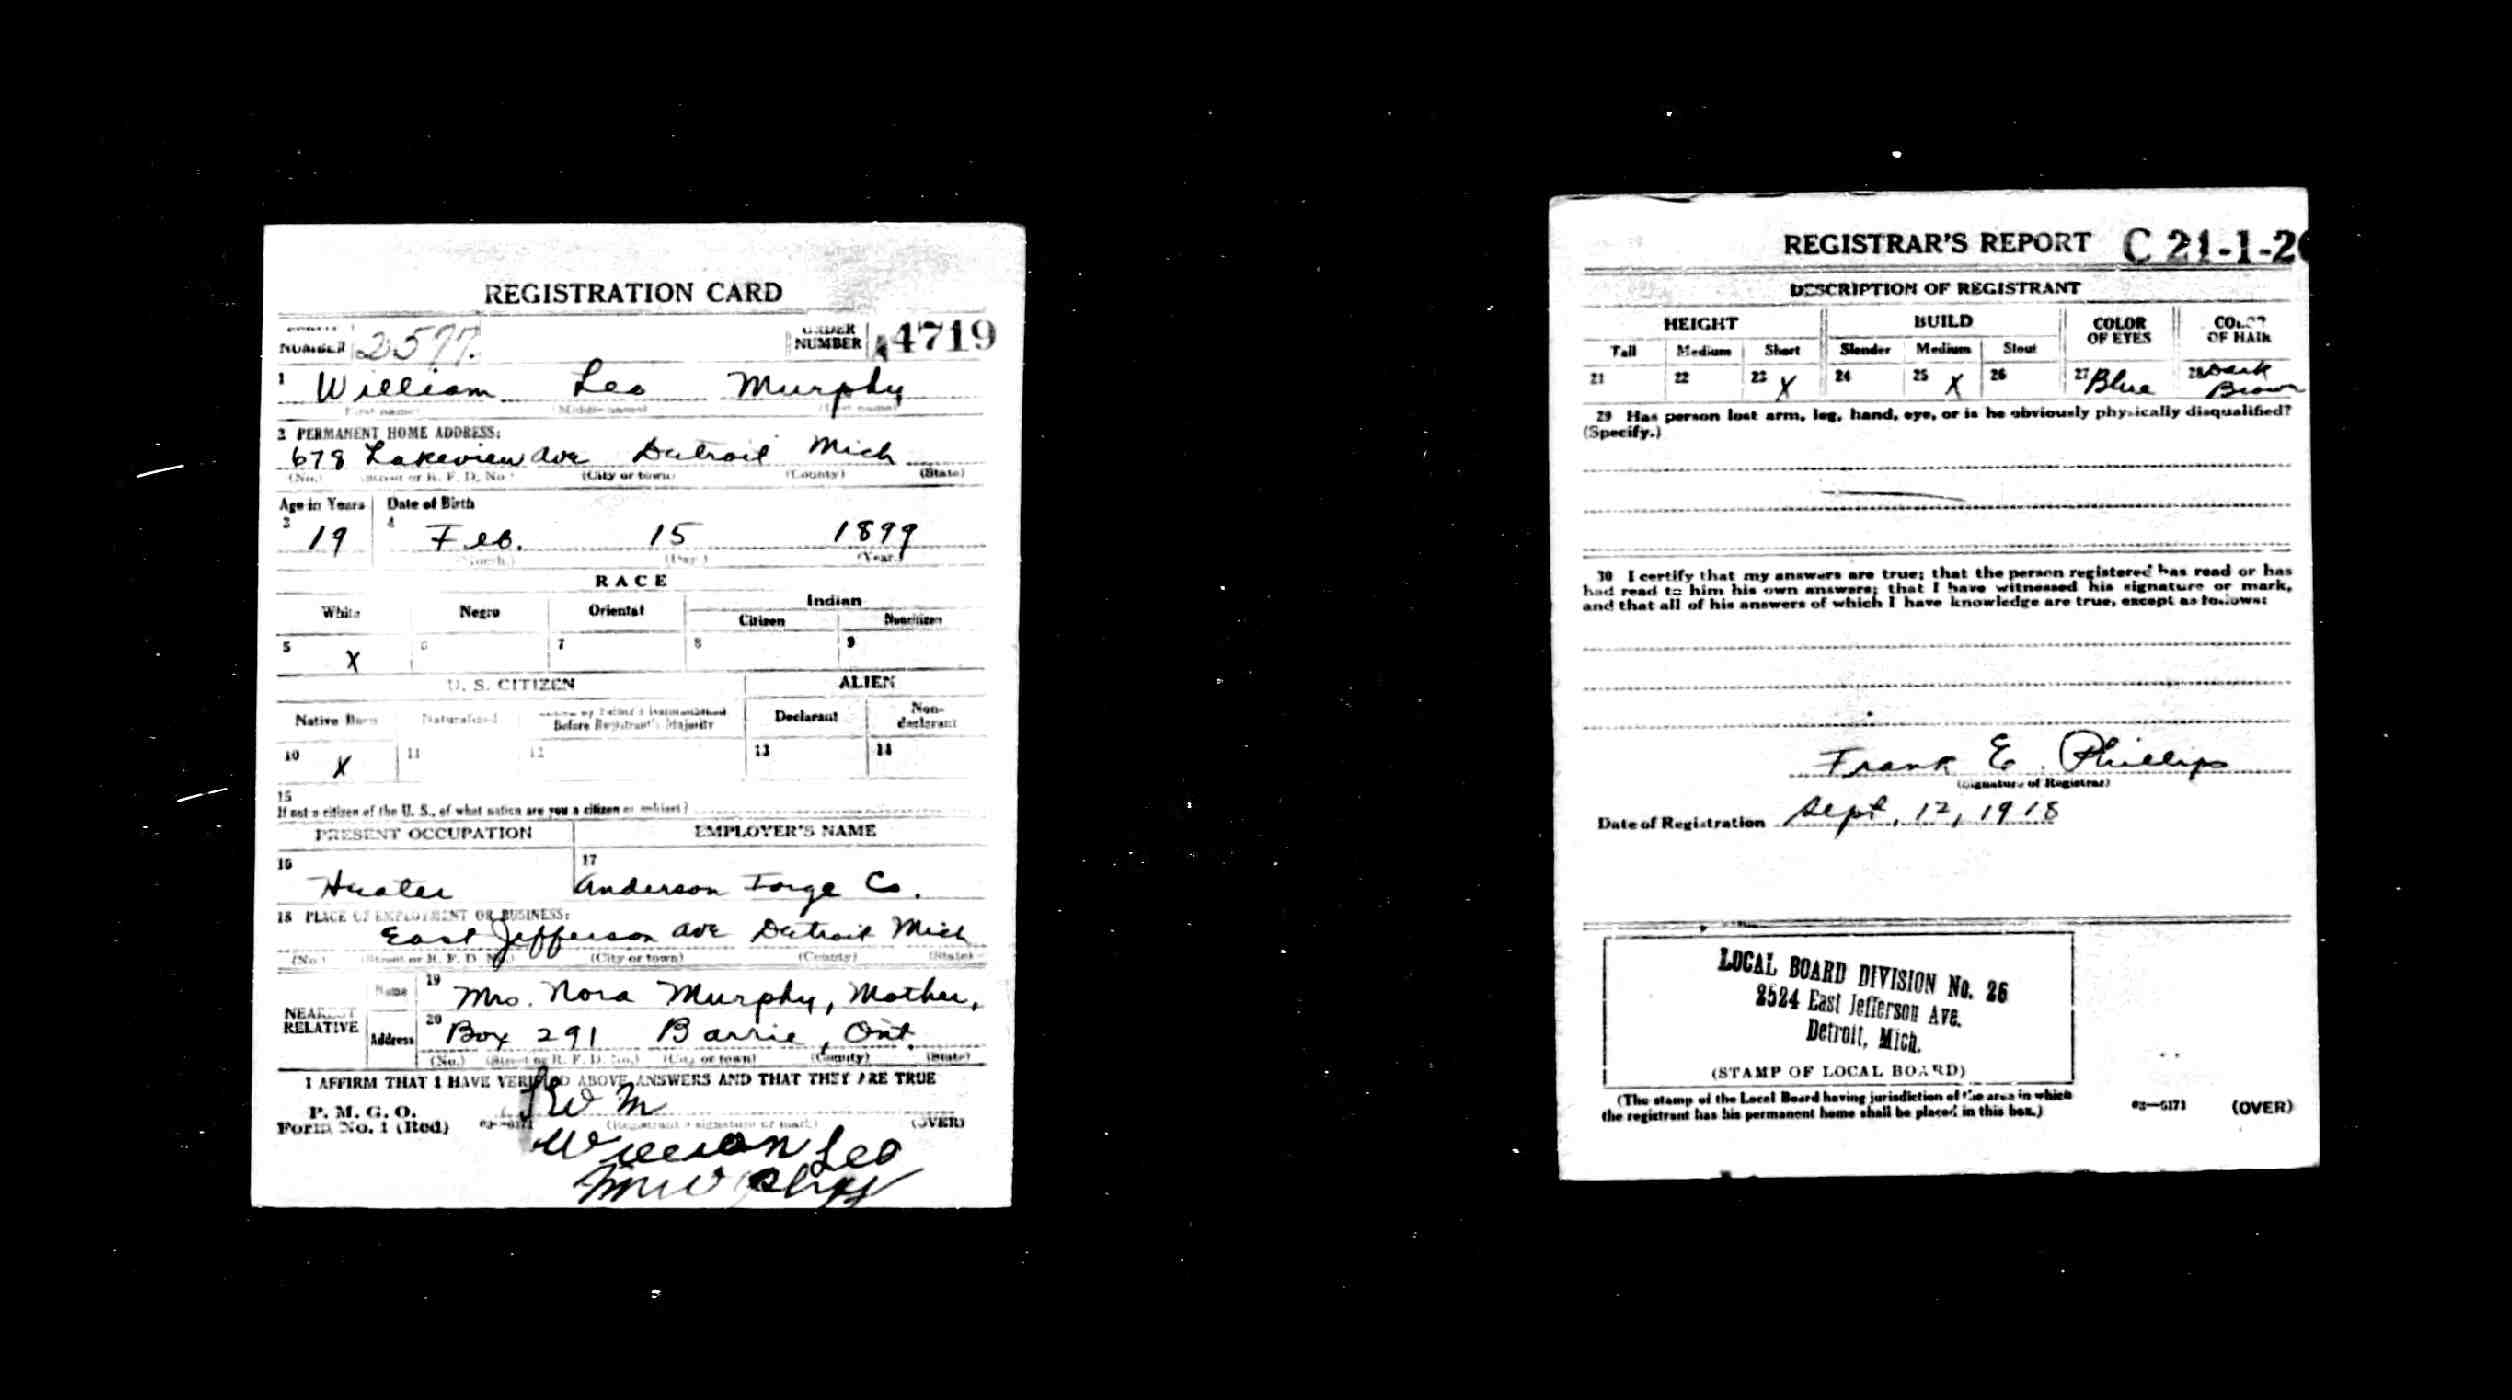 REGISTRATION CARD
NUMBER 2597. ORDER NUMBER A4719
1 William Leo Murphy
(First name) (Middle name) (Last name)
2 PERMANENT HOME ADDRESS:
678 Lakeview ave Detroit Mich
(No.) (Street or R. F. D. No.) (City or town) (County) (State)
Age in Years Date of Birth
3 19 4 Feb. 15 1899
(Month.) (Day.) (Year.)
RACE
White Negro Oriental Indian
Citizen Noncitizen
5 X 6 7 8 9
U. S. CITIZEN ALIEN
Native Born Naturalized Before Registrant's Majority Declarant Non-declarant
10 X 11 12 13 14
15
If not a citizen of the U. S., of what nation are you a citizen or subject?
PRESENT OCCUPATION EMPLOYER'S NAME
16 Heater 17 Anderson Forge Co.
18 PLACE OF EMPLOYMENT OR BUSINESS:
East Jefferson ave Detroit Mich
(No.) (Street or R. F. D. No.) (City or town) (County) (State)
NEAREST RELATIVE
Name 19 Mrs. Nora Murphy, Mother,
Address 20 Box 291 Barrie, Ont.
(No.) (Street or R. F. D. No.) (City or town) (County) (State)
I AFFIRM THAT I HAVE VERIFIED ABOVE ANSWERS AND THAT THEY ARE TRUE
P. M. G. O.
Form No. 1 (Red) 03—6171 (Registrant's signature or mark) (OVER)
W M
William Leo
Murphy
REGISTRAR'S REPORT C 21-1-2
DESCRIPTION OF REGISTRANT
HEIGHT BUILD COLOR OF EYES COLOR OF HAIR
Tall Medium Short Slender Medium Stout
21 22 23 X 24 25 X 26 27 Blue 28 Dark Brown
29 Has person lost arm, leg, hand, eye, or is he obviously physically disqualified?
(Specify.)
30 I certify that my answers are true; that the person registered has read or has
had read to him his own answers; that I have witnessed his signature or mark,
and that all of his answers of which I have knowledge are true, except as follows:
Frank E. Phillips
(Signature of Registrar)
Date of Registration Sept. 12, 1918
LOCAL BOARD DIVISION No. 26
2524 East Jefferson Ave.
Detroit, Mich.
(STAMP OF LOCAL BOARD)
(The stamp of the Local Board having jurisdiction of the area in which
the registrant has his permanent home shall be placed in this box.)
03—6171 (OVER)